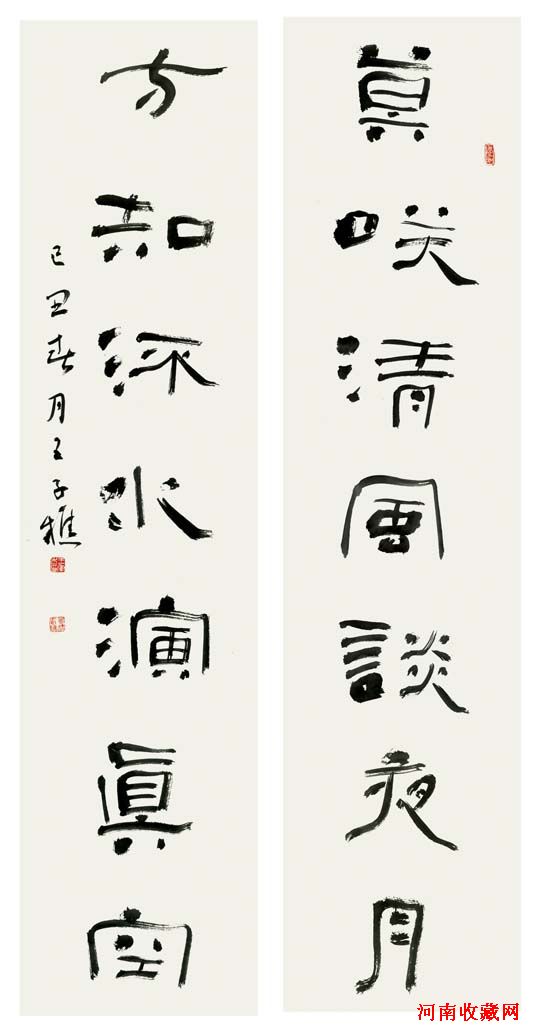 莫咲清風談夜月
方知流水演眞空
己丑春月王子樵
河南收藏网